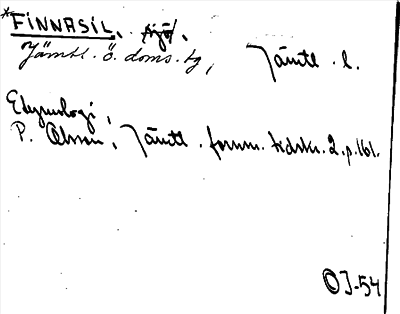 *FINNASIL. sjö.
Jämtl. ö. doms. tg, Jämtl. l.
Etymologi,
P. Olsson, Jämtl. fornm. tidskr. 2. p. 161.
OJ-54